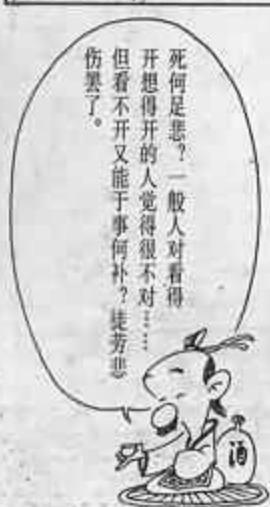 死何足悲？一般人对看得
开想得开的人觉得很不对……
但看不开又能于事何补？徒劳悲
伤罢了。
酒